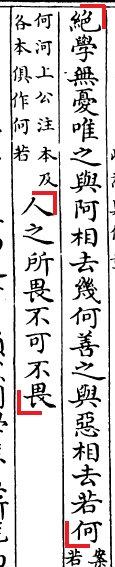 絕學無憂唯之與阿相去幾何善之與惡相去若何
案
若
何河上公注本及
各本俱作何若
人之所畏不可不畏